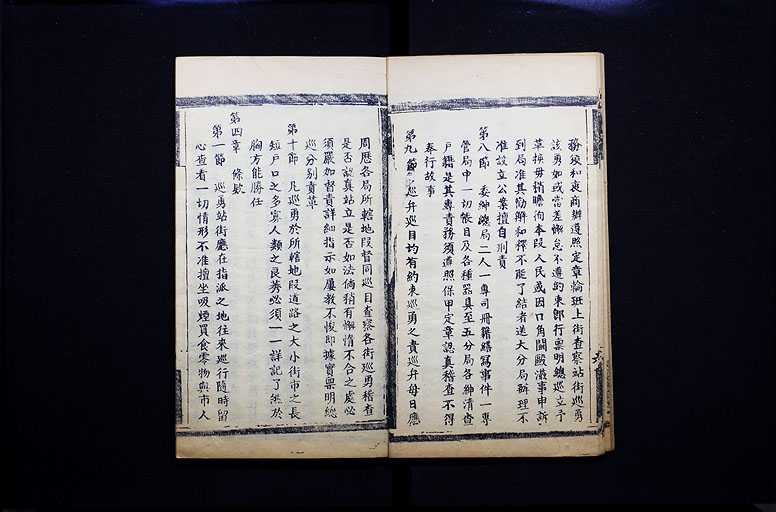 務須和衷商辦遵照定章輪班上街查察站街巡勇
該勇如或當差懈怠不遵約束即行禀明總巡立予
革換毋稍瞻徇本段人民或因口角鬪毆滋事申訴
到局准其勸解和釋不能了結者送大分局辦理不
准設立公案擅自刑責
第八節 委紳幾局二人一專司册籍繕寫事件一專
管局中一切帳目及各種器具至五分局各紳清查
戶籍是其專責務須遵照保甲定章認真稽查不得
奉行故事
第九節 巡弁巡目均有約束巡勇之責巡弁每日應
周歷各局所轄地段督同巡目查察各街巡勇稽查
是否認真站立是否如法倘稍有懈惰不合之處必
須嚴加督責詳細指示如屢教不悛即據實禀明總
巡分別責革
第十節 凡巡勇於所轄地段道路之大小街市之長
短戶口之多寡人類之良莠必須一一詳記了然於
胸方能勝任
第四章 條欵
第一節 巡勇站街應在指派之地往來巡行隨時留
心查看一切情形不准擅坐吸煙買食零物與市人